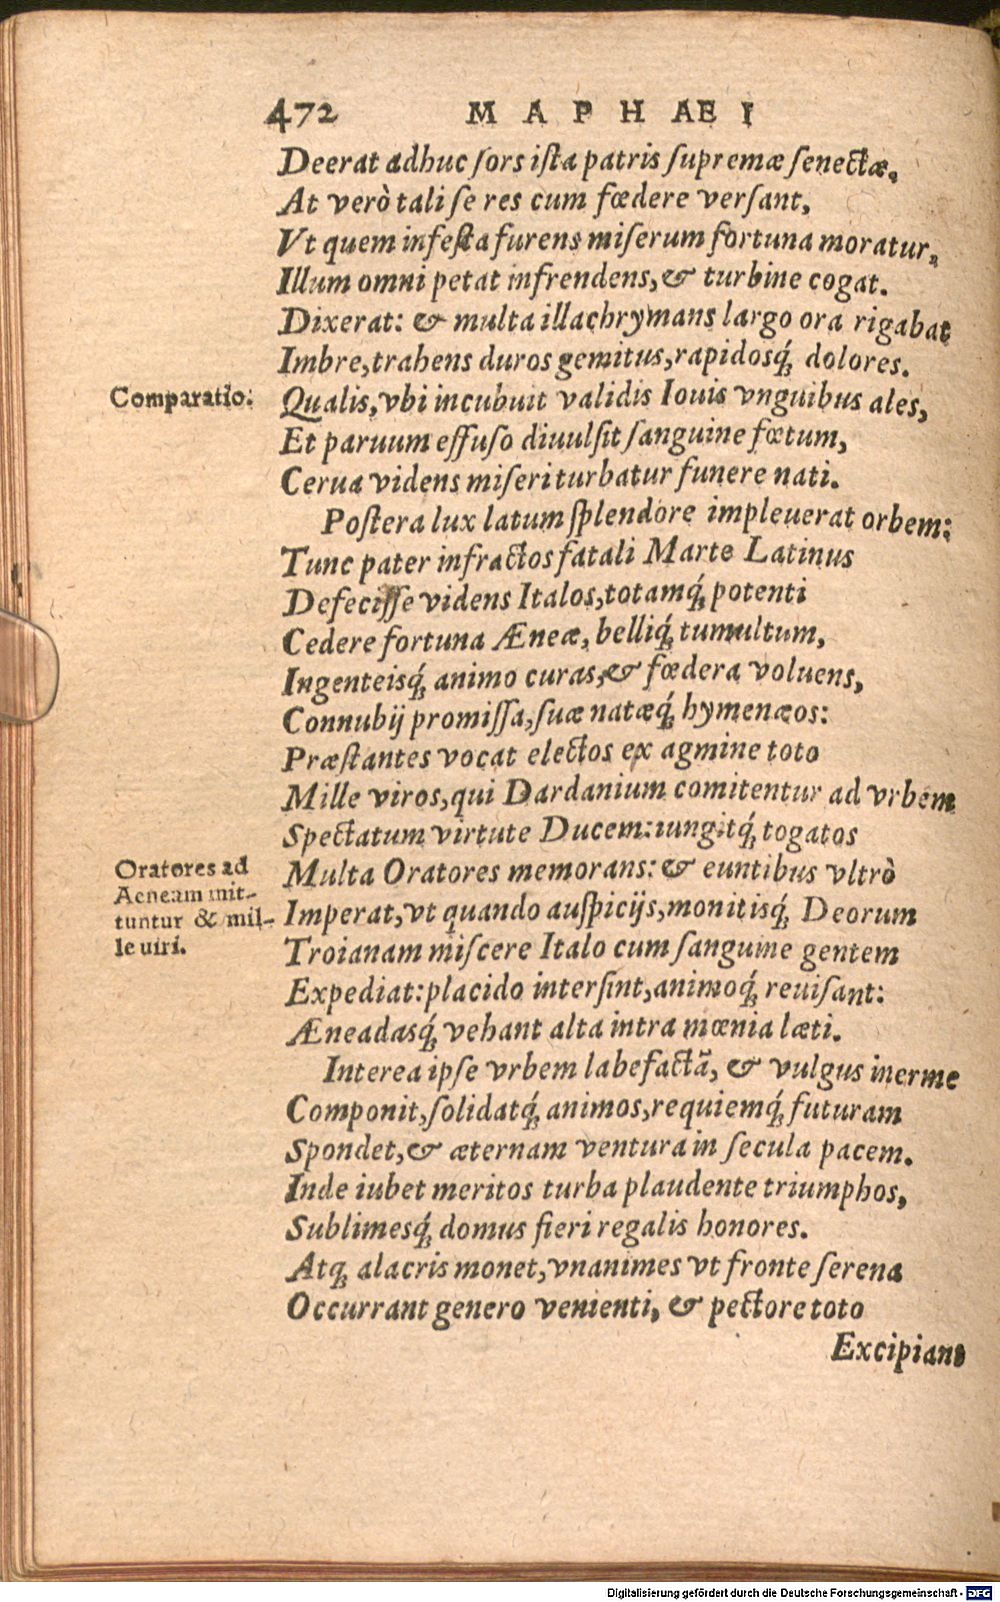 472 MAPHAEI
Deerat adhuc ſors iſta patris ſupremæ ſenectæ.
At verò tali ſe res cum fœdere verſant,
Vt quem infeſta furens miſerum fortuna moratur,
Illum omni petat infrendens, & turbine cogat.
Dixerat: & multa illachrymans largo ora rigabat
Imbre, trahens duros gemitus, rapidosq́; dolores.
Comparatio.
Qualis, vbi incubuit validis Iouis vnguibus ales,
Et paruum effuſo diuulſit ſanguine fœtum,
Cerua videns miſeri turbatur funere nati.
Poſtera lux latum ſplendore impleuerat orbem:
Tunc pater infractos fatali Marte Latinus
Defeciſſe videns Italos, totamq́; potenti
Cedere fortuna Æneæ, belliq́; tumultum,
Ingenteisq́; animo curas, & fœdera voluens,
Connubij promiſſa, ſuæ natæq́; hymenæos:
Præſtantes vocat electos ex agmine toto
Mille viros, qui Dardanium comitentur ad vrbem
Spectatum virtute Ducem: iungitq́; togatos
Oratores ad
Aeneam mit-
tuntur & mil-
le uiri.
Multa Oratores memorans: & euntibus vltrò
Imperat, vt quando auſpicijs, monitisq́; Deorum
Troianam miſcere Italo cum ſanguine gentem
Expediat: placido interſint, animoq́; reuiſant:
Æneadasq́; vehant alta intra mœnia læti.
Interea ipſe vrbem labefactã, & vulgus inerme
Componit, ſolidatq́; animos, requiemq́; futuram
Spondet, & æternam ventura in ſecula pacem.
Inde iubet meritos turba plaudente triumphos,
Sublimesq́; domus fieri regalis honores.
Atq; alacris monet, vnanimes vt fronte ſerena
Occurrant genero venienti, & pectore toto
Excipiant
Digitalisierung gefördert durch die Deutsche Forschungsgemeinschaft - DFG